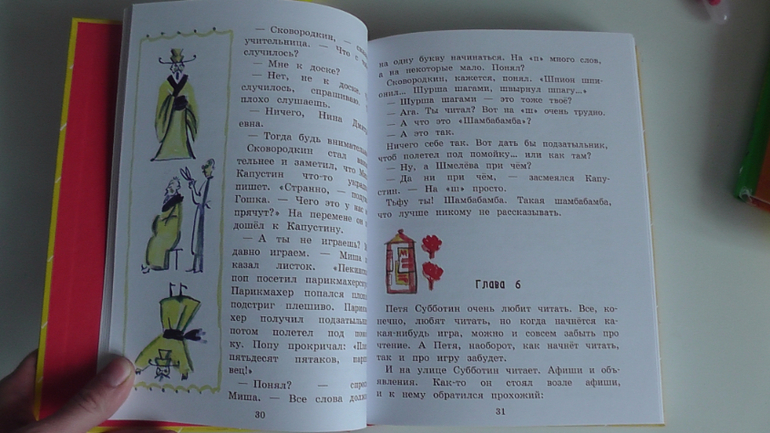 — Сковородкин, —
учительница. — Что с
случилось?
— Мне к доске?
— Нет, не к доске.
случилось, спрашиваю.
плохо слушаешь.
— Ничего, Нина
евна.
— Тогда будь внимательн
Сковородкин стал
тельнее и заметил, что
Капустин что-то
пишет. «Странно, —
Гошка. — Чего это у
прячут?» На перемене он
дошёл к Капустину.
— А ты не играешь?
давно играем. — Миша
казал листок. «Пекинский
поп посетил парикмахерск
Парикмахер попался
подстриг плешиво. Парик
хер получил подзатыльн
потом полетел под
ку. Попу прокричал:
пятьдесят пятаков,
вец!»
— Понял? —
Миша. — Все слова долж
30
на одну букву начинаться. На «п» много слов,
а на некоторые мало. Понял?
Сковородкин, кажется, понял. «Шпион шпи-
онил... Шурша шагами, швырнул шпагу...»
— Шурша шагами — это тоже твоё?
— Ага. Ты читал? Вот на «ш» очень трудно.
— А что это «Шамбабамба»?
— А это так.
Ничего себе так. Вот дать бы подзатыльник,
чтоб полетел под помойку... или как там?
— Ну, а Шмелёва при чём?
— Да ни при чём, — засмеялся Капу-
стин. — На «ш» просто.
Тьфу ты! Шамбабамба. Такая шамбабамба,
что лучше никому не рассказывать.
Глава 6
Петя Субботин очень любит читать. Все, ко-
нечно, любят читать, но когда начнётся ка-
кая-нибудь игра, можно и совсем забыть про
чтение. А Петя, наоборот, как начнёт читать,
так и про игру забудет.
И на улице Субботин читает. Афиши и объ-
явления. Как-то он стоял возле афиши,
и к нему обратился прохожий:
31